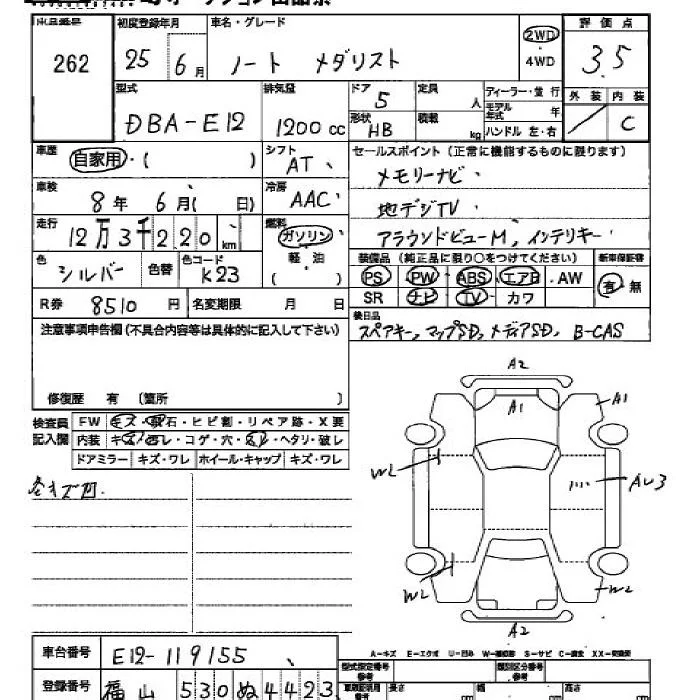 初度登録年月 車名・グレード 2WD 4WD 評価点
262 25年 6月 ノート メダリスト 3.5
型式 DBA-E12 排気量 1200cc ドア 5 定員 人 ディーラー・並行
形状 HB 積載 kg モデル年式 年 ハンドル 左・右 外装 内装 C
車歴 自家用・( ) シフト AT
車検 8年 6月( 日) 冷房 AAC
走行 12万3千220km 燃料 ガソリン 軽油 ( )
色 シルバー 色替 色コード K23
R券 8510円 名変期限 月 日
セールスポイント(正常に機能するものに限ります)
メモリーナビ、
地デジTV、
アラウンドビューM, インテリキー
装備品(純正品に限り○をつけてください) 新車保証書
PS PW ABS エアB AW 有・無
SR ナビ TV カワ
後日品
スペアキー, マップSD, メディアSD, B-CAS
注意事項申告欄(不具合内容等は具体的に記入して下さい)
修復歴 有 〔箇所 〕
検査員記入欄 FW キズ・飛石・ヒビ割・リペア跡・X要
内装 キズ・コゲ・穴・ヘタリ・破レ
ドアミラー キズ・ワレ ホイール・キャップ キズ・ワレ
A2
A1 A1
WL AU3
WL W2
A2
A-キズ E-エクボ U-凹み W-補修跡 S-サビ C-腐食 XX-交換済
車台番号 E12-119155
登録番号 福山 530 ぬ 4423
型式指定番号 類別区分番号
長さ cm 幅 cm 高さ cm